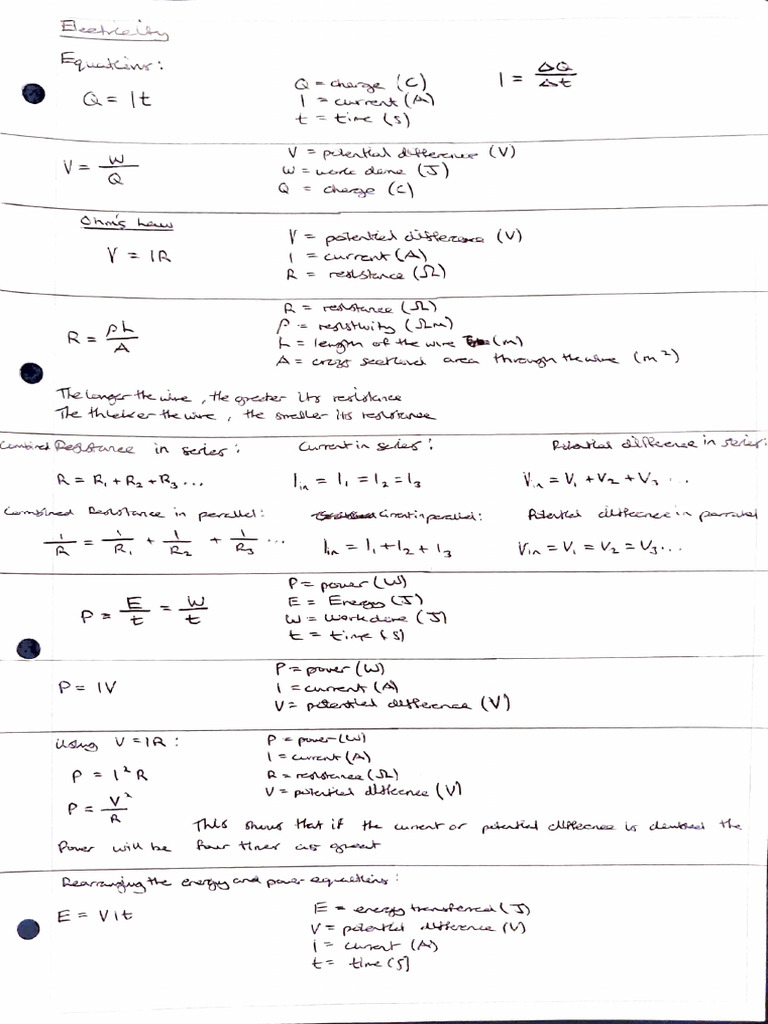 Electricity
Equations:
Q = It
Q = charge (C)
I = current (A)
t = time (s)
I = ΔQ/Δt
V = W/Q
V = potential difference (V)
W = work done (J)
Q = charge (C)
Ohm's Law
V = IR
V = potential difference (V)
I = current (A)
R = resistance (Ω)
R = ρL/A
R = resistance (Ω)
ρ = resistivity (Ωm)
L = length of the wire (m)
A = cross sectional area through the wire (m²)
The longer the wire, the greater its resistance
The thicker the wire, the smaller its resistance
Combined Resistance in series:
R = R₁ + R₂ + R₃ ...
Current in series:
I_in = I₁ = I₂ = I₃
Potential difference in series:
V_in = V₁ + V₂ + V₃ ...
Combined Resistance in parallel:
1/R = 1/R₁ + 1/R₂ + 1/R₃ ...
in parallel:
I_in = I₁ + I₂ + I₃
Potential difference in parralel
V_in = V₁ = V₂ = V₃ ...
P = E/t = W/t
P = power (W)
E = Energy (J)
W = work done (J)
t = time (s)
P = IV
P = power (W)
I = current (A)
V = potential difference (V)
Using V = IR:
P = I²R
P = V²/R
P = power (W)
I = current (A)
R = resistance (Ω)
V = potential difference (V)
This shows that if the current or potential difference is doubled the
Power will be four times as great
Rearranging the energy and power equations:
E = VIt
E = energy transferred (J)
V = potential difference (V)
I = current (A)
t = time (s)